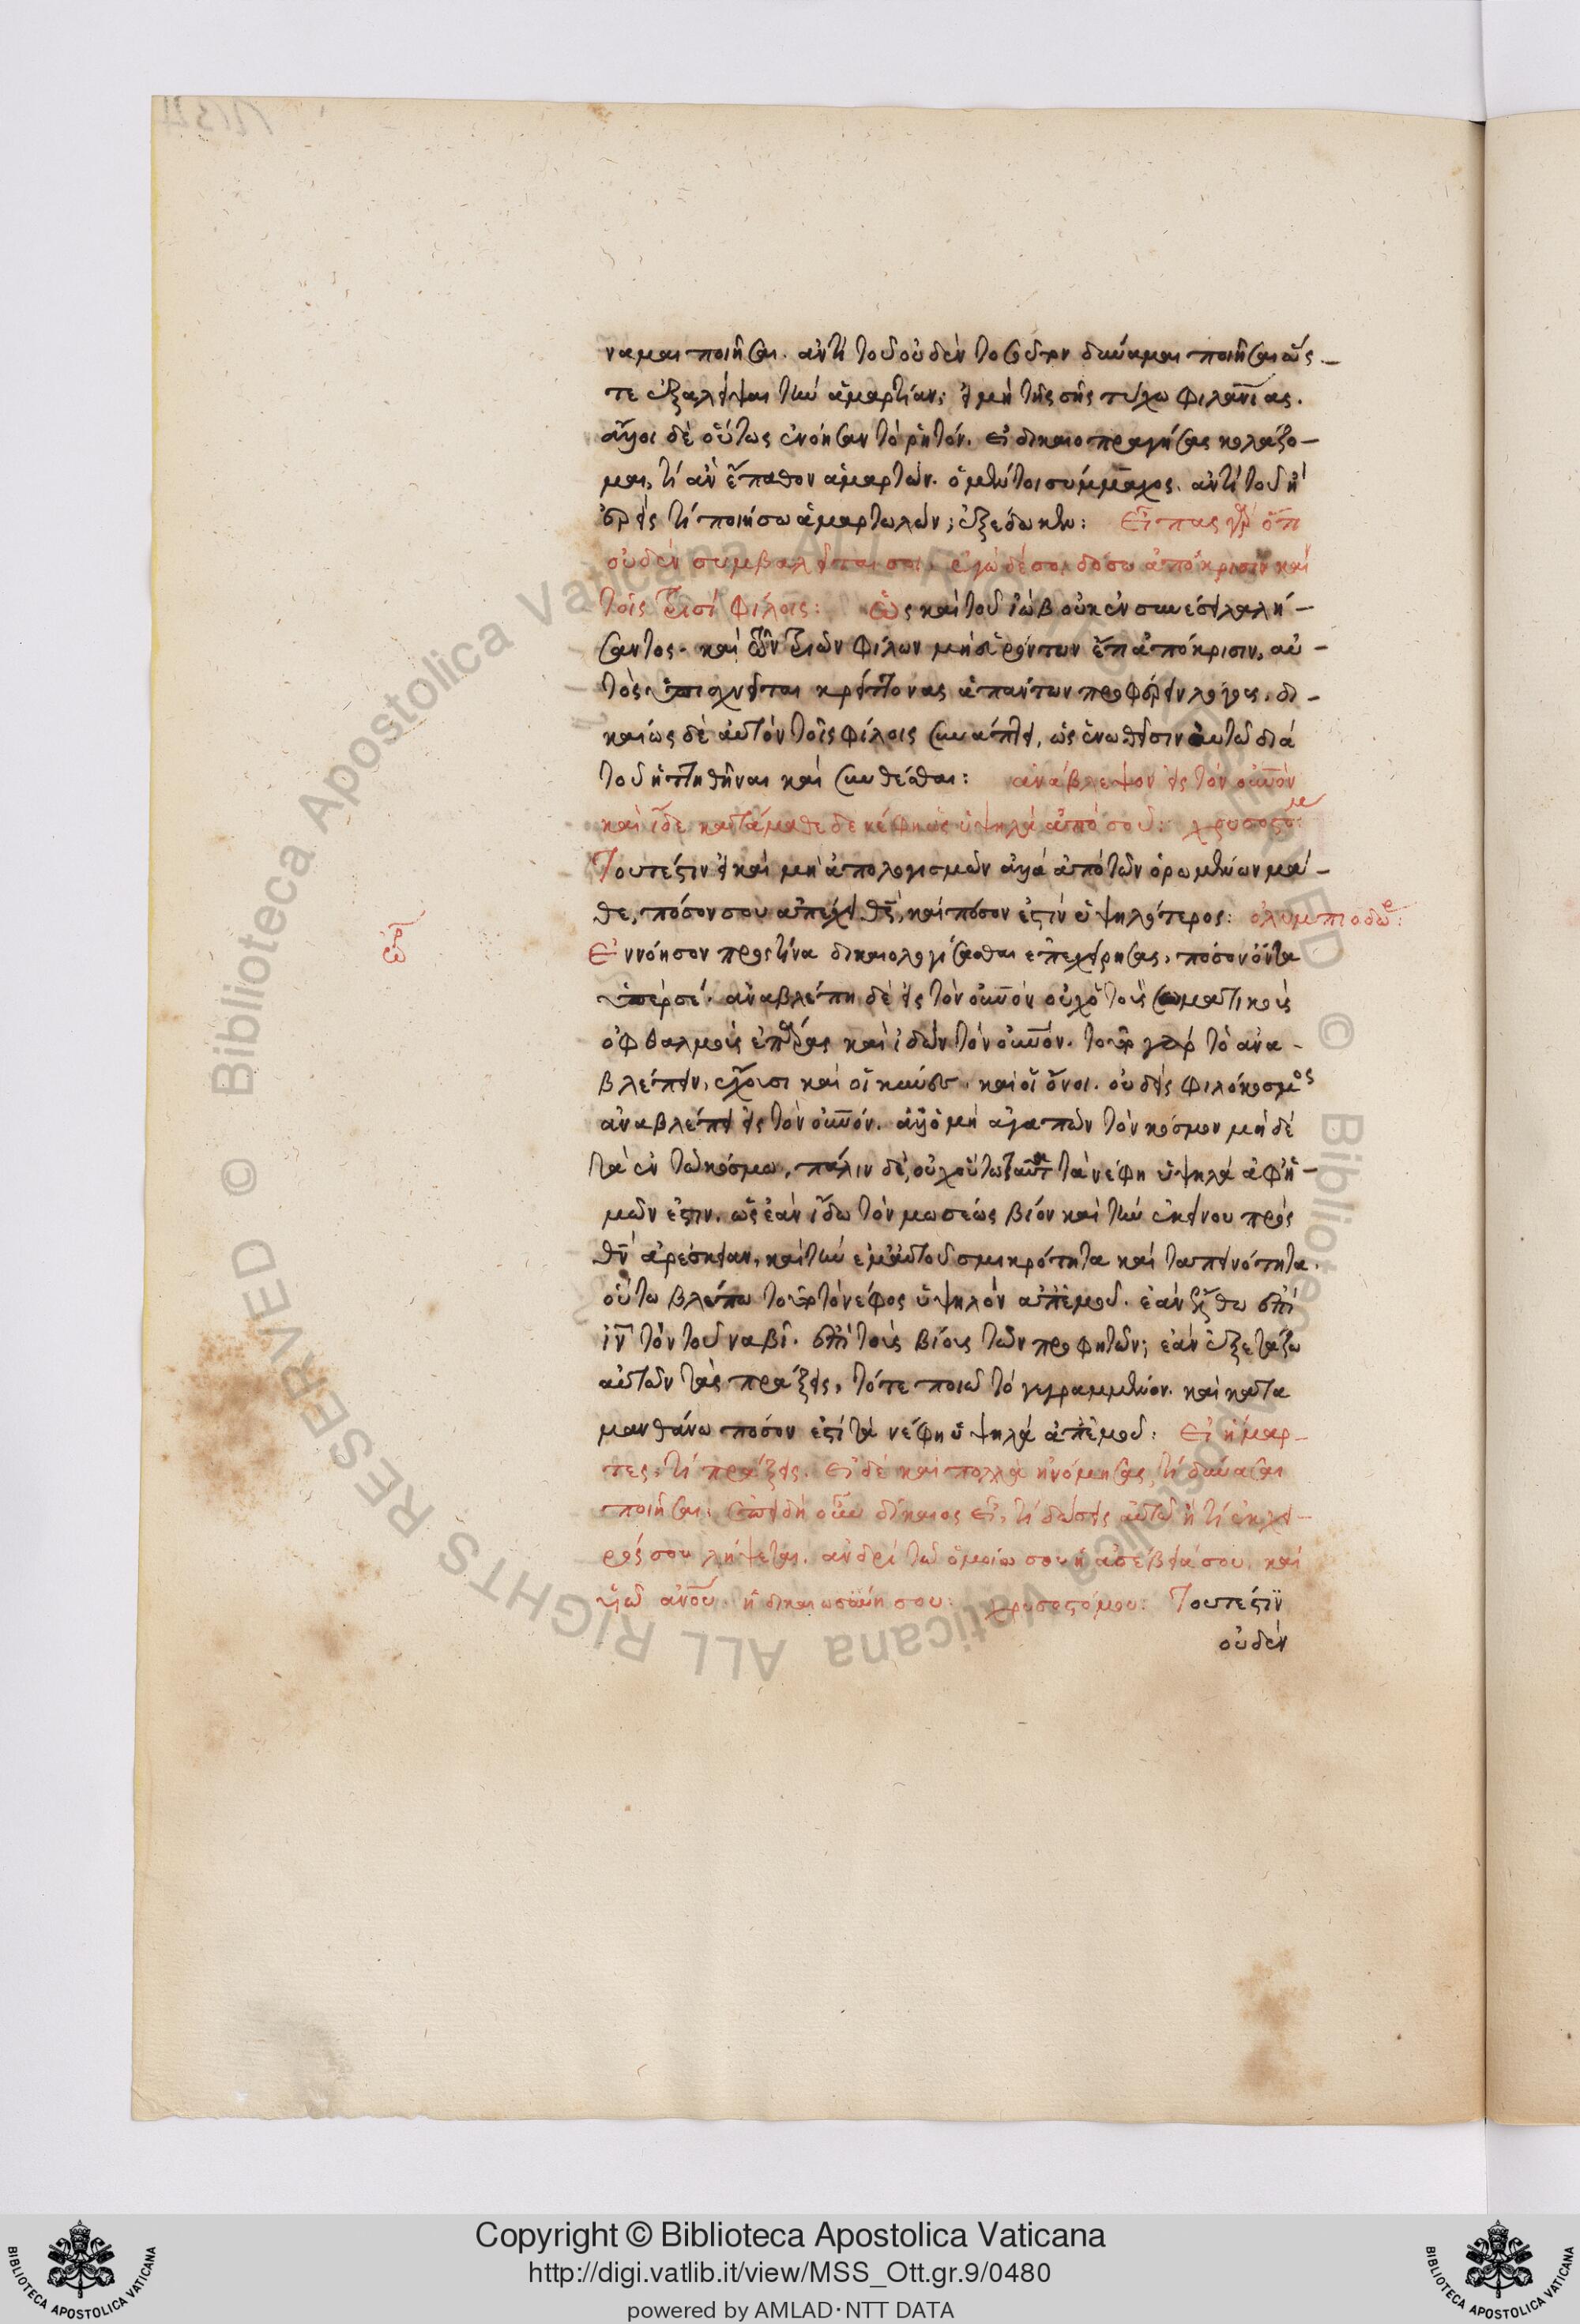 ναμαι ποιῆσαι. ἀντὶ τοῦ οὐδὲν τοσοῦτον δύναμαι ποιῆσαι ὥς-
τε ἐξαλεῖψαι τὴν ἁμαρτίαν, εἰ μὴ τῆς σῆς τύχω φιλανίας.
ἄλλοι δὲ οὕτως ἐνόησαν τὸ ῥητόν. εἰ δικαιοπραγήσας κολάζο-
μαι, τί ἂν ἔπαθον ἁμαρτών. ὁ μέντοι σύμμαχος. ἀντὶ τοῦ ἢ
ἐρεῖς τί ποιήσω ἁμαρτωλὸν; ἐξέδωκεν: Εἶπας γὰρ ὅτι
οὐδὲν συμβαλεῖται σοι. ἐγὼ δέ σοι δώσω ἀπόκρισιν καὶ
τοῖς τρισὶ φίλοις: Ὡς καὶ τοῦ ἰὼβ οὐκ ἐν συνέσει λαλή-
σαντος. καὶ τῶν τριῶν φίλων μὴ εὑρόντων ἔτι ἀπόκρισιν, αὐ-
τὸς ὑπισχνεῖται κρείττονας ἁπάντων προφέρειν λόγους. δι-
καίως δὲ αὐτὸν τοῖς φίλοις συνάπτει, ὡς ἑνωθεῖσιν αὐτῶ διὰ
τοῦ ἡττηθῆναι καὶ συνθέσθαι: ἀνάβλεψον εἰς τὸν οὐνὸν
καὶ ἴδε. κατάμαθε δὲ νέφη ὡς ὑψηλὰ ἀπὸ σοῦ: χρυσοστομ:
Τουτέστιν εἰ καὶ μὴ ἀπὸ λογισμῶν ἀλλὰ ἀπὸ τῶν ὁρωμένων μά-
θε, πόσον σου ἀπέχει θς, καὶ πόσον ἐστὶν ὑψηλότερος: ὀλυμπιοδώρ:
ὡρ
Ἐννόησον πρὸς τίνα δικαιολογήσασθαι ἐπεχείρησας, πόσον ὄντα
ὑπὲρ σέ. ἀναβλέπει δὲ εἰς τὸν οὐνὸν οὐχ ὁ τοὺς σωματικοὺς
ὀφθαλμοὺς ἐπάρας καὶ ἰδὼν τὸν οὐνόν. τοῦτο γὰρ τὸ ἀνα-
βλέπειν, ἔχουσι καὶ οἱ κύνες. καὶ οἱ ὄνοι. οὐδεὶς φιλόκοσμος
ἀναβλέπει εἰς τὸν οὐνόν. ἀλλ' ὁ μὴ ἀγαπῶν τὸν κόσμον μηδὲ
τὰ ἐν τῶ κόσμω, πάλιν δὲ, οὐχ οὕτω ταῦτα τὰ νέφη ὑψηλὰ ἀφ' ἡ-
μῶν ἐστιν. ὡς ἐὰν ἴδω τὸν μωσέως βίον καὶ τὴν ἐκείνου πρὸς
θν ἀρέσκειαν, καὶ τὴν ἐμαυτοῦ σμικρότητα καὶ ταπεινότητα.
οὕτω βλέπω τοῦτο τὸ νέφος ὑψηλὸν ἀπ' ἐμοῦ. ἐὰν ἔλθω ἐπὶ
ιν τὸν τοῦ ναβῆ. ἐπὶ τοὺς βίους τῶν προφητῶν; ἐὰν ἐξετάζω
αὐτῶν τὰς πράξεις, τότε ποιῶ τὸ γεγραμμένον. καὶ κατα
μανθάνω πόσον ἐστὶ τὰ νέφη ὑψηλὰ ἀπ' ἐμοῦ: Εἰ ἥμαρ-
τες, τί πράξεις. Εἰ δὲ καὶ πολλὰ ἠνόμησας, τί δύνασαι
ποιῆσαι. ἐπειδὴ οὖν δίκαιος εἶ, τί δώσεις αὐτῶ ἢ τί ἐκ χει-
ρός σου λήψεται. ἀνδρὶ τῶ ὁμοίω σου ἡ ἀσέβειά σου. καὶ
υἱῶ ἀνου. ἡ δικαιοσύνη σου: χρυσοστόμου: Τουτέστιν
οὐδὲν
Copyright © Biblioteca Apostolica Vaticana
http://digi.vatlib.it/view/MSS_Ott.gr.9/0480
powered by AMLAD·NTT DATA